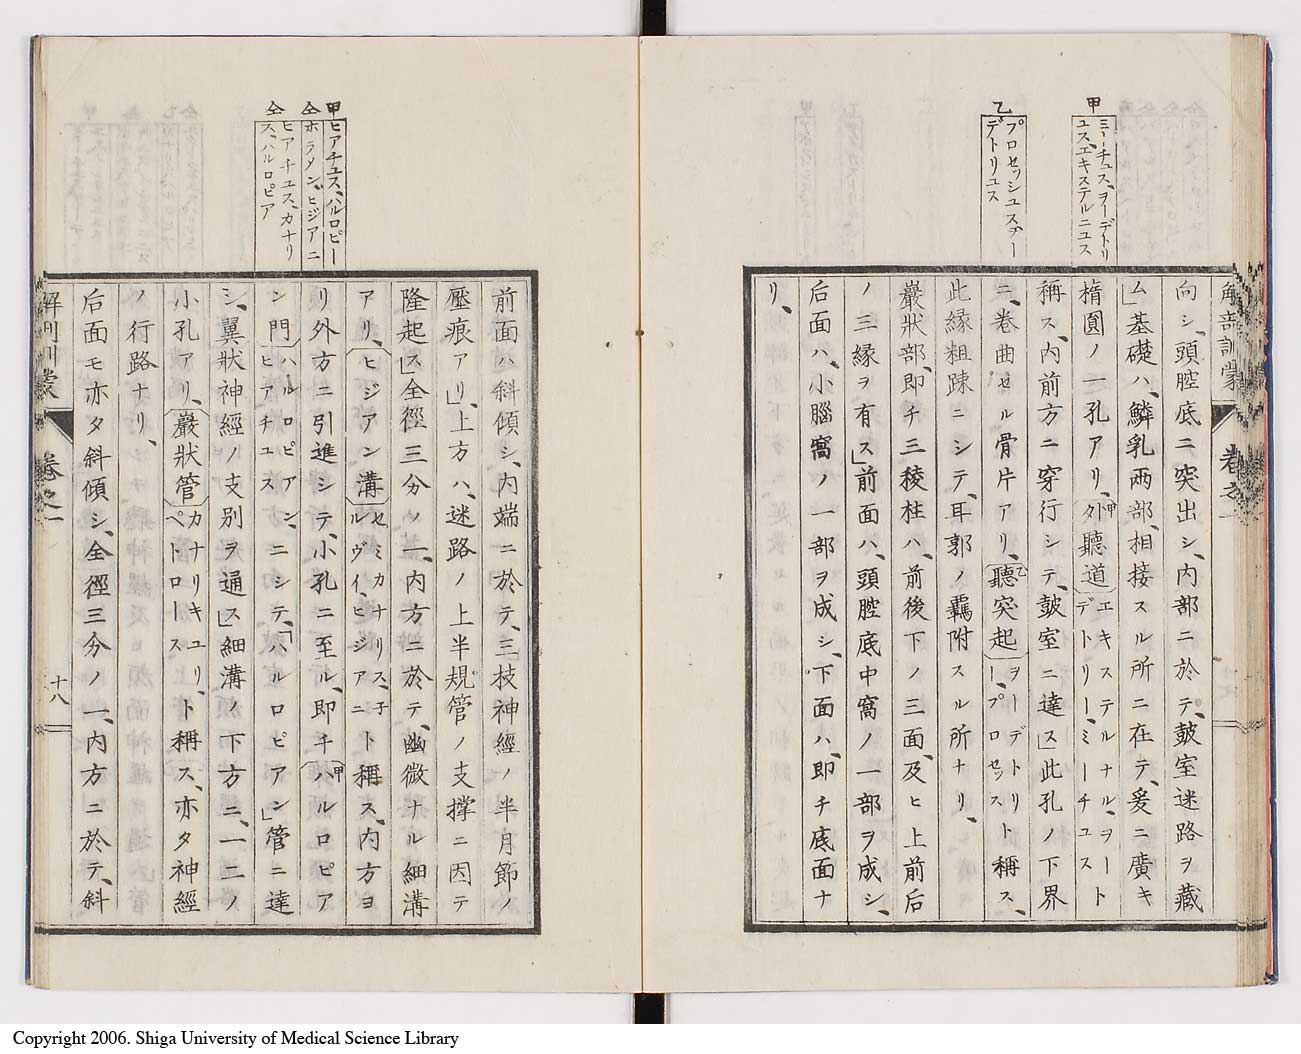 甲
ミーチュス、ヲーデトリ
ユス、エキステルニュス
乙
プロセッシュス、ヲー
デトリユス
向シ、頭腔底ニ突出シ、内部ニ於テ、皷室迷路ヲ藏
ム」基礎ハ、鱗乳両部、相接スル所ニ在テ、爰ニ廣キ
楕圓ノ一孔アリ、甲外聽道エキステルナル、ヲート
デトリー、ミーチュス
稱ス、内前方ニ穿行シテ、皷室ニ達ス」此孔ノ下界
ニ、卷曲セル骨片アリ、乙聽突起ヲーデトリ
ー、プロセッスト稱ス、
此縁粗踈ニシテ、耳郭ノ羈附スル所ナリ、
巖狀部、即チ三稜柱ハ、前後下ノ三面、及ヒ上前后
ノ三縁ヲ有ス」前面ハ、頭腔底中窩ノ一部ヲ成シ、
后面ハ、小腦窩ノ一部ヲ成シ、下面ハ、即チ底面ナ
リ、
解剖訓蒙
卷之一
甲
ヒアチュス、ハルロピー
仝
ホラメン、ヒジアニ
仝
ヒアチュス、カナリ
ス、ハルロピア
前面ハ斜傾シ、内端ニ於テ、三枝神經ノ半月節ノ
壓痕アリ」上方ハ、迷路ノ上半規管ノ支撑ニ因テ
隆起ス」全徑三分ノ一、内方ニ於テ、幽微ナル細溝
アリ、ヒジアン溝セミカナリス、子
ルヴイ、ヒジアニト稱ス、内方ヨ
リ外方ニ引進シテ、小孔ニ至ル、即チ甲ハルロピア
ン門ハルロピアン、
ヒアチュスニシテ、「ハルロピアン」管ニ達
シ、翼狀神經ノ支別ヲ通ス」細溝ノ下方ニ、一二ノ
小孔アリ、巖狀管カナリキユリ、
ペトロースト稱ス、亦タ神經
ノ行路ナリ、
后面モ亦タ斜傾シ、全徑三分ノ一、内方ニ於テ、斜
解剖訓蒙
卷之一
十八
Copyright 2006. Shiga University of Medical Science Library